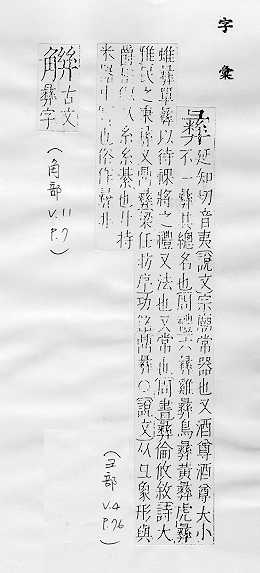 字彙
彝
延知切音夷說文宗廟常器也又酒尊酒尊大小
不一彝其總名也周禮六彝雞彝鳥彝黃彝虎彝
蜼彝斝彝以待祼將之禮又法也又常也周書彝倫攸敘詩大
雅民之秉彝又 彝梁任昉序功銘鼎彝○說文从彑象形與
爵 糸糸綦也廾持
米器中 也俗作 非
(彑部 V.4 P.76)
古文
彝字
(角部 V.11 P.7)